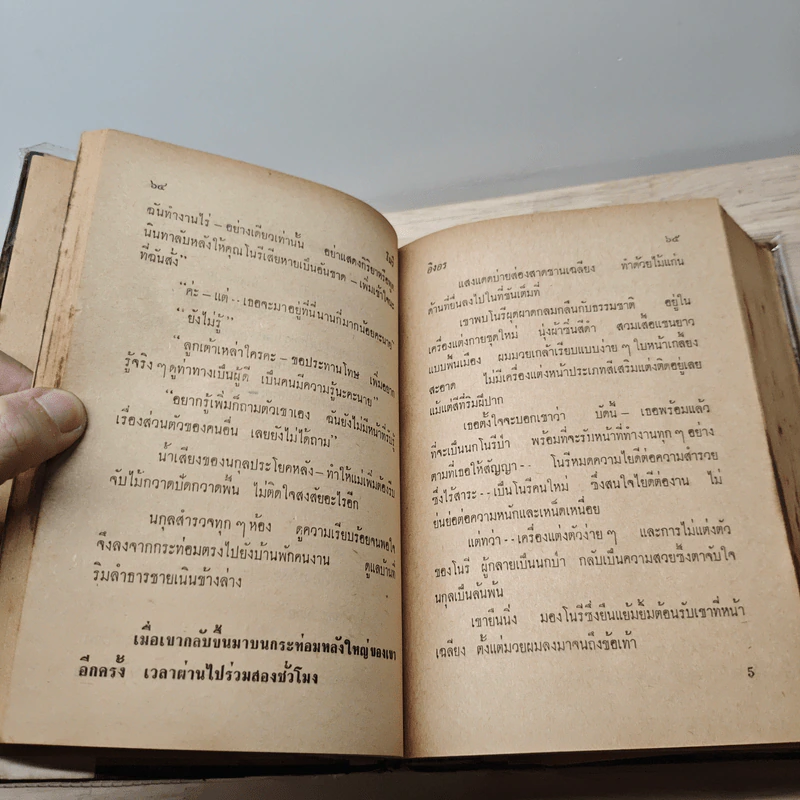 ๖๔
ฉันทำงานไร่ – อย่างเดียวเท่านั้น อย่าแสดงกิริยาหรือพูด
นินทาลับหลังให้คุณโนรีเสียหายเป็นอันขาด – เพิ่มเข้าใจนะ
ที่ฉันสั่ง”
“ค่ะ – แต่ - - เธอจะมาอยู่ที่นี่นานกี่มากน้อยคะนาย”
“ยังไม่รู้”
“ลูกเต้าเหล่าใครคะ – ขอประทานโทษ เพิ่มอยาก
รู้จริง ๆ ดูท่าทางเป็นผู้ดี เป็นคนมีความรู้นะคะนาย”
“อยากรู้เพิ่มก็ถามตัวเขาเอง ฉันยังไม่มีหน้าที่รับรู้
เรื่องส่วนตัวของคนอื่น เลยยังไม่ได้ถาม”
น้ำเสียงของนกุลประโยคหลัง – ทำให้แม่เพิ่มต้องรีบ
จับไม้กวาดปัดกวาดพื้น ไม่ติดใจสงสัยอะไรอีก
นกุลสำรวจทุก ๆ ห้อง ดูความเรียบร้อยจนพอใจ
จึงลงจากกระท่อมตรงไปยังบ้านพักคนงาน ดูแลบ้านที่
ริมลำธารชายเนินข้างล่าง
เมื่อเขากลับขึ้นมาบนกระท่อมหลังใหญ่ของเขา
อีกครั้ง เวลาผ่านไปร่วมสองชั่วโมง
อิงอร ๖๕
แสงแดดบ่ายส่องสาดชานเฉลียง ทำด้วยไม้แก่น
ด้านที่ยื่นลงไปในที่ชันเต็มที่
เขาพบโนรีผุดผาดกลมกลืนกับธรรมชาติ อยู่ใน
เครื่องแต่งกายชุดใหม่ นุ่งผ้าซิ่นสีดำ สวมเสื้อแขนยาว
แบบพื้นเมือง ผมมวยเกล้าเรียบแบบง่าย ๆ ใบหน้าเกลี้ยง
สะอาด ไม่มีเครื่องแต่งหน้าประเภทสีเสริมแต่งติดอยู่เลย
แม้แต่สีที่ริมฝีปาก
เธอตั้งใจจะบอกเขาว่า บัดนี้ – เธอพร้อมแล้ว
ที่จะเป็นนกโนรีป่า พร้อมที่จะรับหน้าที่ทำงานทุก ๆ อย่าง
ตามที่เธอให้สัญญา - - โนรีหมดความไยดีต่อความสำรวย
ซึ่งไร้สาระ - - เป็นโนรีคนใหม่ ซึ่งสนใจไยดีต่องาน ไม่
ย่นย่อต่อความหนักและเหน็ดเหนื่อย
แต่ทว่า - - เครื่องแต่งตัวง่าย ๆ และการไม่แต่งตัว
ของโนรี ผู้กลายเป็นนกป่า กลับเป็นความสวยซึ้งตาจับใจ
นกุลเป็นล้นพ้น
เขายืนนิ่ง มองโนรีซึ่งยืนแย้มยิ้มต้อนรับเขาที่หน้า
เฉลียง ตั้งแต่มวยผมลงมาจนถึงข้อเท้า
5